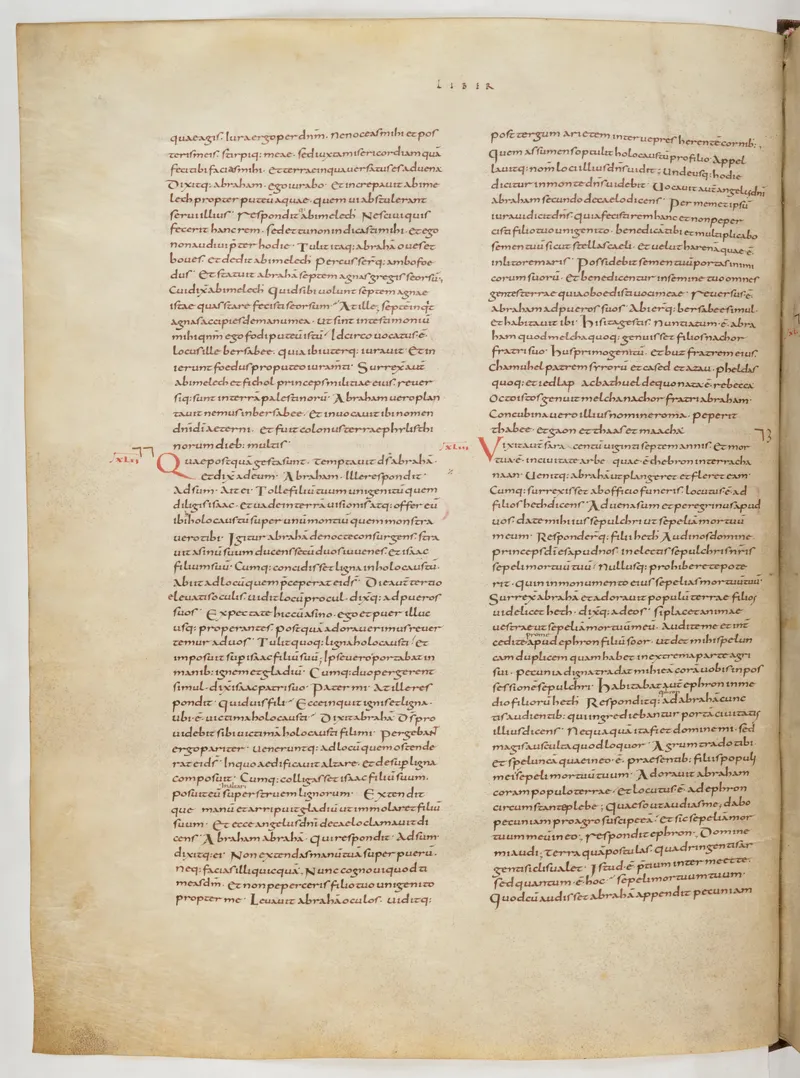 LIBER
quae agis. Iura ergo per dnm. ne noceas mihi et pos
teris meis. stirpiq: meae. sed iuxta misericordiam quā
feci tibi facias mihi. Et terrae in qua uersatus es aduena
Dixitq: abraham. ego iurabo. Et increpauit abime
lech propter puteū aquae. quem ui abstulerant
serui illius. respondit abimelech. Nesciui quis
fecerit hanc rem. sed et tu non indicasti mihi. Et ego
non audiui pter hodie. Tulit itaq: abrahā oues et
boues. et dedit abimelech. Percusserq: ambo foe
dus. Et statuit abrahā septem agnas gregis seorsū.
Cui dix abimelech. Quid sibi uolunt septem agnae
istae quas stare fecisti seorsum. At ille. septē inqt
agnas accipies de manu mea. ut sint in testimoniū
mihi qnm ego fodi puteū istū. Idcirco uocat ē
locus ille bersabee. quia ibi uterq: iurauit. Et in
ierunt foedus pro puteo iuramti. Surrex aut
abimelech et fichol princeps militiae eius. reuer
siq: sunt in terrā palestinorū. Abraham uero plan
tauit nemus in bersabee. Et inuocauit ibi nomen
dni di aeterni. et fuit colonus terrae phylisthi
norum dieb: multis.
XLII Quae postquā gesta sunt. temptauit ds abrahā.
et dix ad eum. Abraham. Ille respondit.
Adsum. Ait ei. Tolle filiū tuum unigenitū quem
diligis isaac. et uade in terrā uisionis atq: offer eū
ibi holocaustū super unū montiū quem monstra
uero tibi. Igitur abrahā de nocte consurgens. stra
uit asinū suum ducens secū duos iuuenes. et isaac
filium suū. Cumq: concidisset ligna in holocaustū.
Abiit ad locū quem pceperat ei ds. Die aut tertio
eleuatis oculis. uidit locū procul. dixq: ad pueros
suos. Expectate hic cū asino. ego et puer illuc
usq: properantes. postquā adorauerimus reuer
temur ad uos. Tulit quoq: ligna holocausti. et
imposuit sup isaac filiū suū; Ipse uero portabat in
manib: ignem et gladiū. Cumq: duo pergerent
simul. dix isaac patri suo. Pater mi. At ille res
pondit. Quid uis fili. Ecce inquit ignis et ligna.
ubi ē uictima holocausti. Dixit abrahā. Ds pro
uidebit sibi uictimā holocausti fili mi. Pergebant
ergo pariter. ueneruntq: ad locū quem ostende
rat ei ds. In quo aedificauit altare. et desup ligna
composuit. Cumq: colligasset isaac filiū suum.
posuit eū super struem lignorum. Extendit
que manū et arripuit gladiū ut immolaret filiū
suum. Et ecce angelus dni de caelo clamauit di
cens. Abraham abrahā. Qui respondit. Adsum
dixitq: ei. Non extendas manū tuā super puerū.
neq: facias illi quicquā. Nunc cognoui quod ti
meas dm. Et non peperceris filio tuo unigenito
propter me. Leuauit abrahā oculos. uiditq:
post tergum arietem inter uepres herentē cornib:.
Quem assumens optulit holocaustū pro filio. Appel
lauitq: nom loci illius dns uidit; Unde usq: hodie
dicitur in monte dns uidebit. Uocauit aut angelus dni
abraham secundo de caelo dicens. Per memet ipsū
iuraui dicit dns. quia fecisti rem hanc et non peper
cisti filio tuo unigenito. benedicā tibi et multiplicabo
semen tuū sicut stellas caeli. et uelut harenā quae ē
in litore maris. Possidebit semen tuū portas inimi
corum suorū. Et benedicentur in semine tuo omnes
gentes terrae quia oboedisti uoci meae. reuersus ē
Abraham ad pueros suos. Abierq: bersabee simul.
et habitauit ibi. His ita gestis. Nuntiatum ē abra
ham quod melcha quoq: genuisset filios nachor
fratri suo. hus primogenitū. et buz fratrem eius.
Chamuhel patrem syrorū et cased et azau. pheldas
quoq: et iedlap. Ac bathuel de quo nata ē rebecca
Octo istos genuit melcha nachor fratri abraham.
Concubina uero illius nomine roma. peperit
thabee. et gaon et thaas et maacha.
XLIII Vixit aut sara. centū uiginti septem annis. et mor
tua ē in ciuitate arbe. quae ē hebron in terra cha
naan. Uenitq: abrahā ut plangeret et fleret eam.
Cumq: surrexisset ab officio funeris. locutus ē ad
filios heth dicens. Aduena sum et peregrinus apud
uos. date mihi ius sepulchri ut sepeliā mortuū
meum. Responderq: filii heth. Audi nos domine.
princeps di es apud nos. in electis sepulchris nris
sepeli mortuū tuū. nullusq: prohibere te pote
rit. quin in monumento eius sepelias mortuū tuū.
Surrex abrahā et adorauit populū terrae filios
uidelicet heth. dixq: ad eos. si placet animae
uestrae ut sepeliā mortuū meū. Audite me et int
cedite pro me apud ephron filiū soor. ut det mihi spelun
cam duplicem quam habet in extrema parte agri
sui. pecunia digna tradat mihi eā corā uobis in pos
sessionē sepulchri. Habitabat aut ephron in me
dio filiorū heth. Responditq: ad abrahā cunc
tis audientib: qui ingrediebantur portā ciuitatis
illius dicens. Nequaquā ita fiet domine mi. sed
magis ausculta quod loquor. Agrum trado tibi
et speluncā quae in eo ē. praesentib: filiis populi
mei sepeli mortuū tuum. Adorauit abraham
coram populo terrae. et locutus ē ad ephron
circumstante plebe; quaeso ut audias me. dabo
pecuniam pro agro suscipe eā. et sic sepeliā mor
tuum meū in eo. respondit ephron. Domine
mi audi; terra quā postulas quadringentis ar
genti siclis ualet. Istud ē ptium inter me et te.
sed quantum ē hoc. sepeli mortuum tuum.
Quod cū audisset abrahā appendit pecuniam